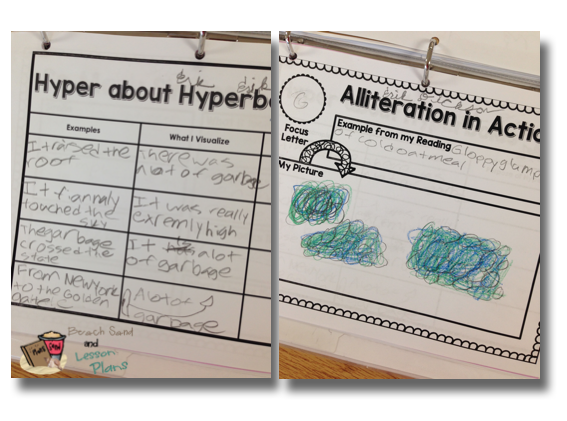 Hyper about Hyperb
Examples
What I Visualize
It raised the
roof
there was
alot of garbge
It finanly
touched the
sky
It was really
exremly high
The garbage
crossed the
state
It alot
of garbage
From New York
to the Golden
Gate
Alot of
garbage
Beach Sand
and
Lesson
Plans
Alliteration in Actio
G
Focus
Letter
Example from my Reading
Gloppy glump
of cold oatmeal
My Picture